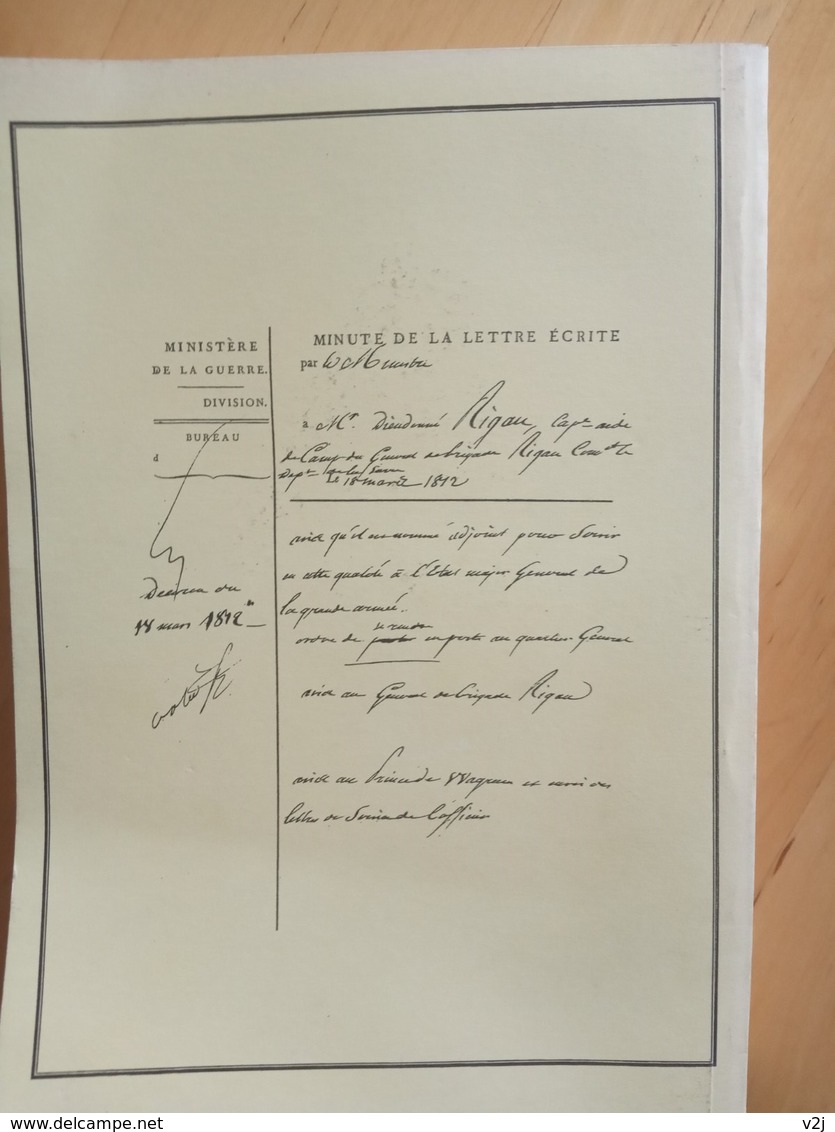 MINISTÈRE
DE LA GUERRE.
DIVISION.
BUREAU
d
Décret du
18 mars 1812
MINUTE DE LA LETTRE ÉCRITE
par le Ministre
à Mr. Dieudonné Rigau, Capne aide
de Camp du Général de brigade Rigau Comdt le
Dept
Le 18 mars 1812
avis qu'il est nommé adjoint pour servir
en cette qualité à l'Etat major Général de
la grande armée.
se rendre
ordre de en poste au quartier Général
avis au Général de brigade Rigau
avis au Prince de Wagram et envoi des
lettres de Service de l'officier
www.delcampe.net
v2j